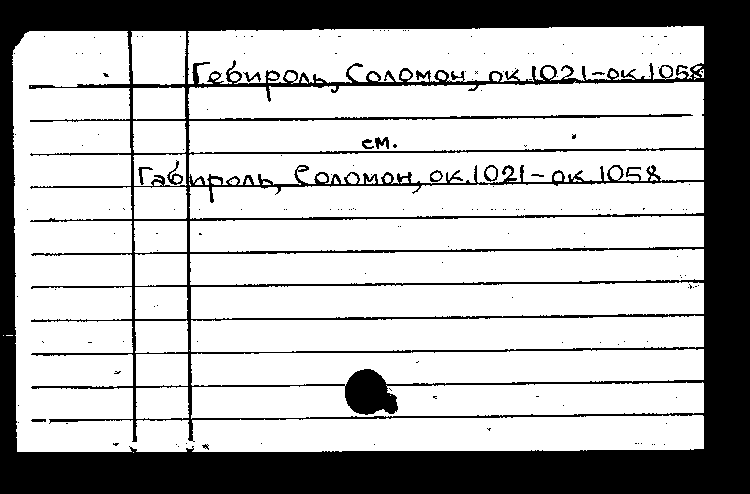 Гебироль, Соломон, ок.1021-ок.1058
см.
Габироль, Соломон, ок.1021-ок.1058